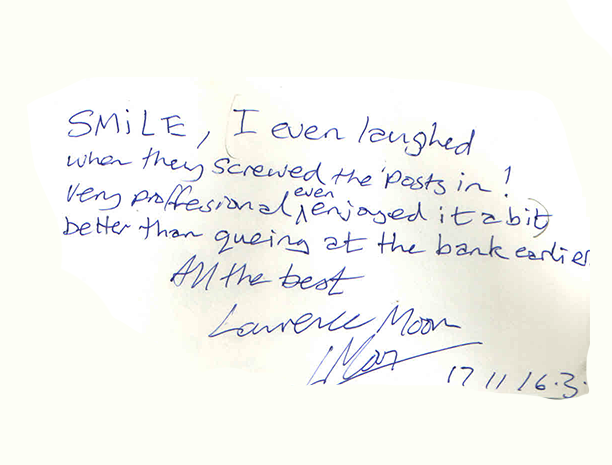 SMiLE, I even laughed
when they screwed the posts in!
very proffesional even enjoyed it a bit
better than queing at the bank earlier
All the best
Laurence Moon
LMoon
17 11 16.3.